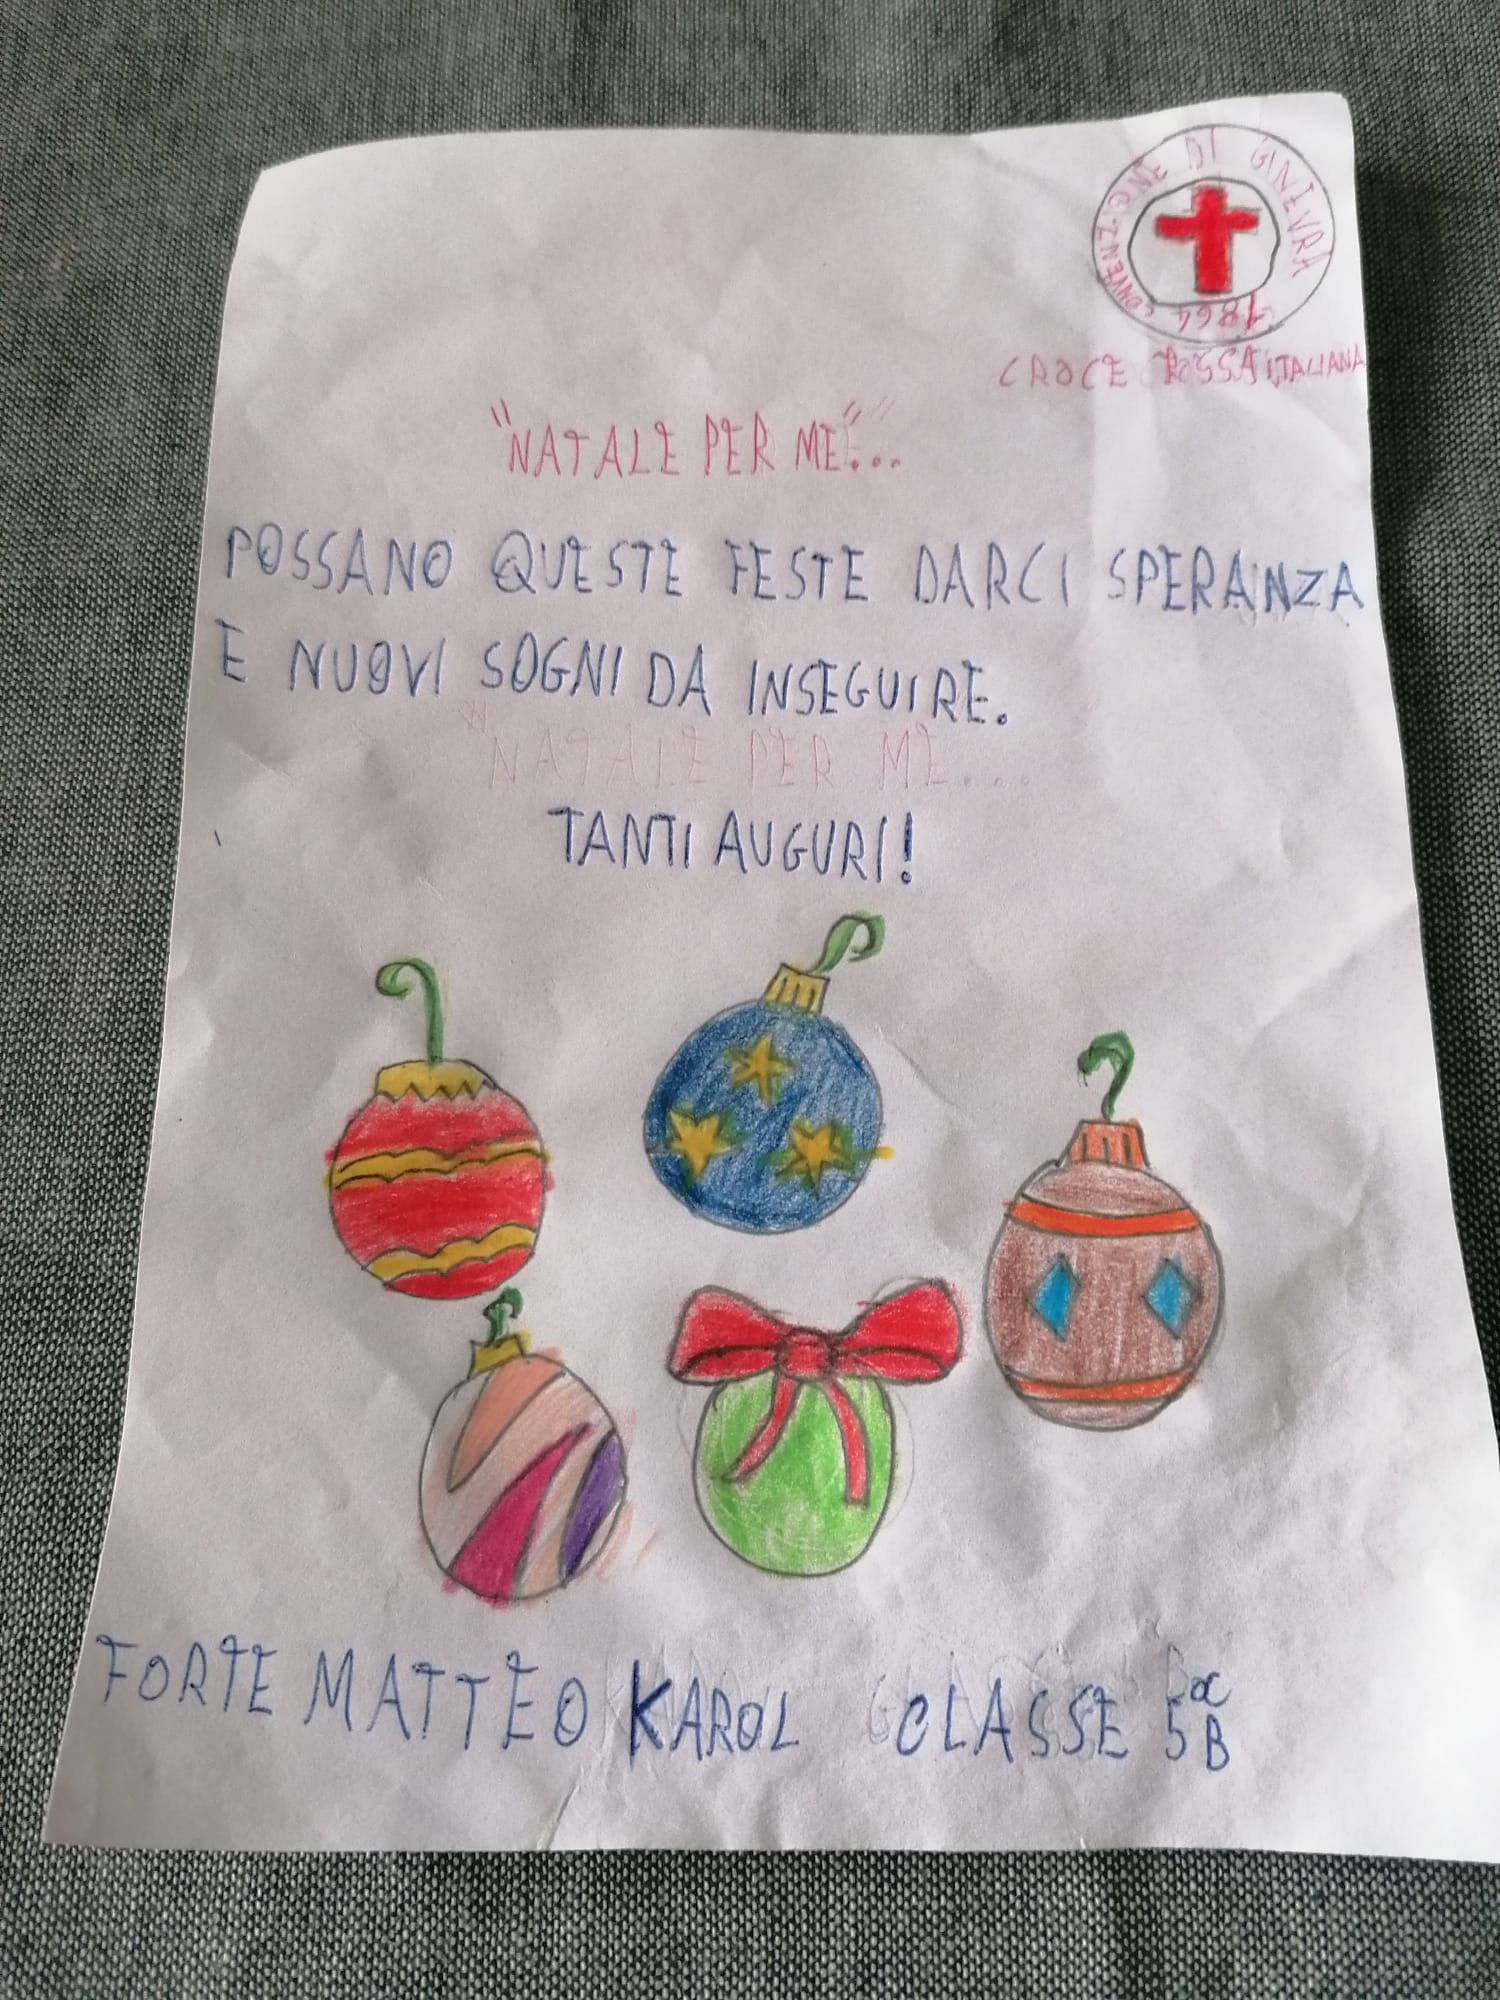 CONVENZIONE DI GINEVRA
1864
CROCE ROSSA ITALIANA
"NATALE PER ME"...
POSSANO QUESTE FESTE DARCI SPERANZA
E NUOVI SOGNI DA INSEGUIRE.
"NATALE PER ME....
TANTI AUGURI!
FORTE MATTEO KAROL CLASSE 5B